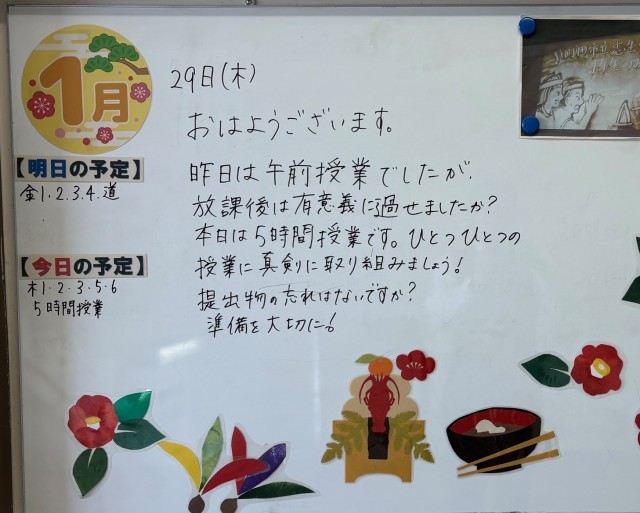 1月
29日(木)
おはようございます。
【明日の予定】
金1.2.3.4.道
昨日は午前授業でしたが、
放課後は有意義に過せましたか?
本日は5時間授業です。ひとつひとつの
授業に真剣に取り組みましょう!
【今日の予定】
木1・2・3・5・6
5時間授業
提出物の忘れはないですか?
準備を大切に!